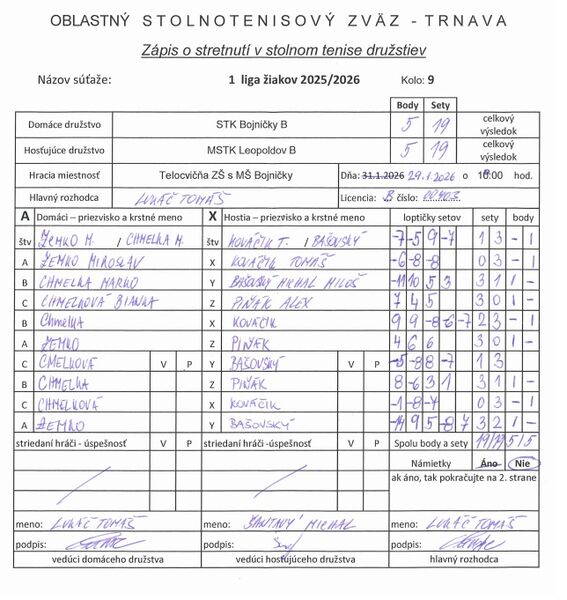 OBLASTNÝ STOLNOTENISOVÝ ZVÄZ - TRNAVA
Zápis o stretnutí v stolnom tenise družstiev
Názov súťaže: 1 liga žiakov 2025/2026 Kolo: 9
Body Sety
Domáce družstvo STK Bojničky B 5 19 celkový výsledok
Hosťujúce družstvo MSTK Leopoldov B 5 19 celkový výsledok
Hracia miestnosť Telocvičňa ZŠ s MŠ Bojničky Dňa: 31.1.2026 29.1.2026 o hod.
Hlavný rozhodca LUKÁČ TOMÁŠ Licencia: B číslo:
A Domáci – priezvisko a krstné meno X Hostia – priezvisko a krstné meno loptičky setov sety body
štv ŽEMKO M. / CHMELKA M. štv KOVÁČIK T. / BAŠOVSKÝ -7 -5 9 -7 1 3 - 1
A ŽEMKO MIROSLAV X KOVÁČIK TOMÁŠ -6 -8 -8 0 3 - 1
B CHMELKA MARKO Y BAŠOVSKÝ MICHAL MILOŠ -11 10 5 3 3 1 1 -
C CHMELKOVÁ BIANKA Z PIŇÁK ALEX 7 4 5 3 0 1 -
B Chmelka X KOVÁČIK 9 9 -8 -6 -7 2 3 - 1
A ŽEMKO Z PIŇÁK 4 6 6 3 0 1 -
C CMELKOVÁ V P Y BAŠOVSKÝ V P -5 -8 8 -7 1 3
B CHMELKA Z PIŇÁK 8 -6 3 1 3 1 1 -
C CHMELKOVÁ X KOVÁČIK -1 -8 -7 0 3 - 1
A ŽEMKO Y BAŠOVSKÝ 9 5 -8 7 3 2 1 -
striedaní hráči - úspešnosť V P striedaní hráči -úspešnosť V P Spolu body a sety 19/19 5/5
Námietky Áno Nie
ak áno, tak pokračujte na 2. strane
meno: LUKÁČ TOMÁŠ meno: ŠANTAVÝ MICHAL meno: LUKÁČ TOMÁŠ
podpis: podpis: podpis:
vedúci domáceho družstva vedúci hosťujúceho družstva hlavný rozhodca